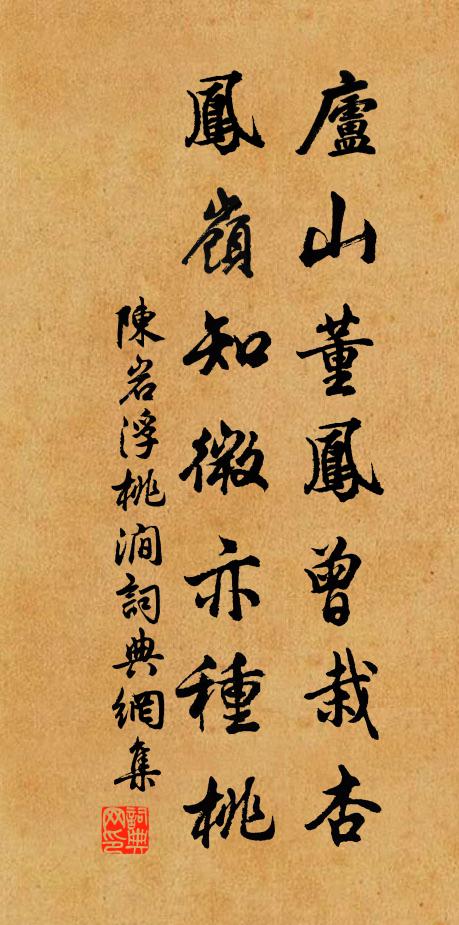 廬山董鳳曾栽杏
鳳嶺知微亦種桃
陳岩浮桃澗詞典網集
詞典网印